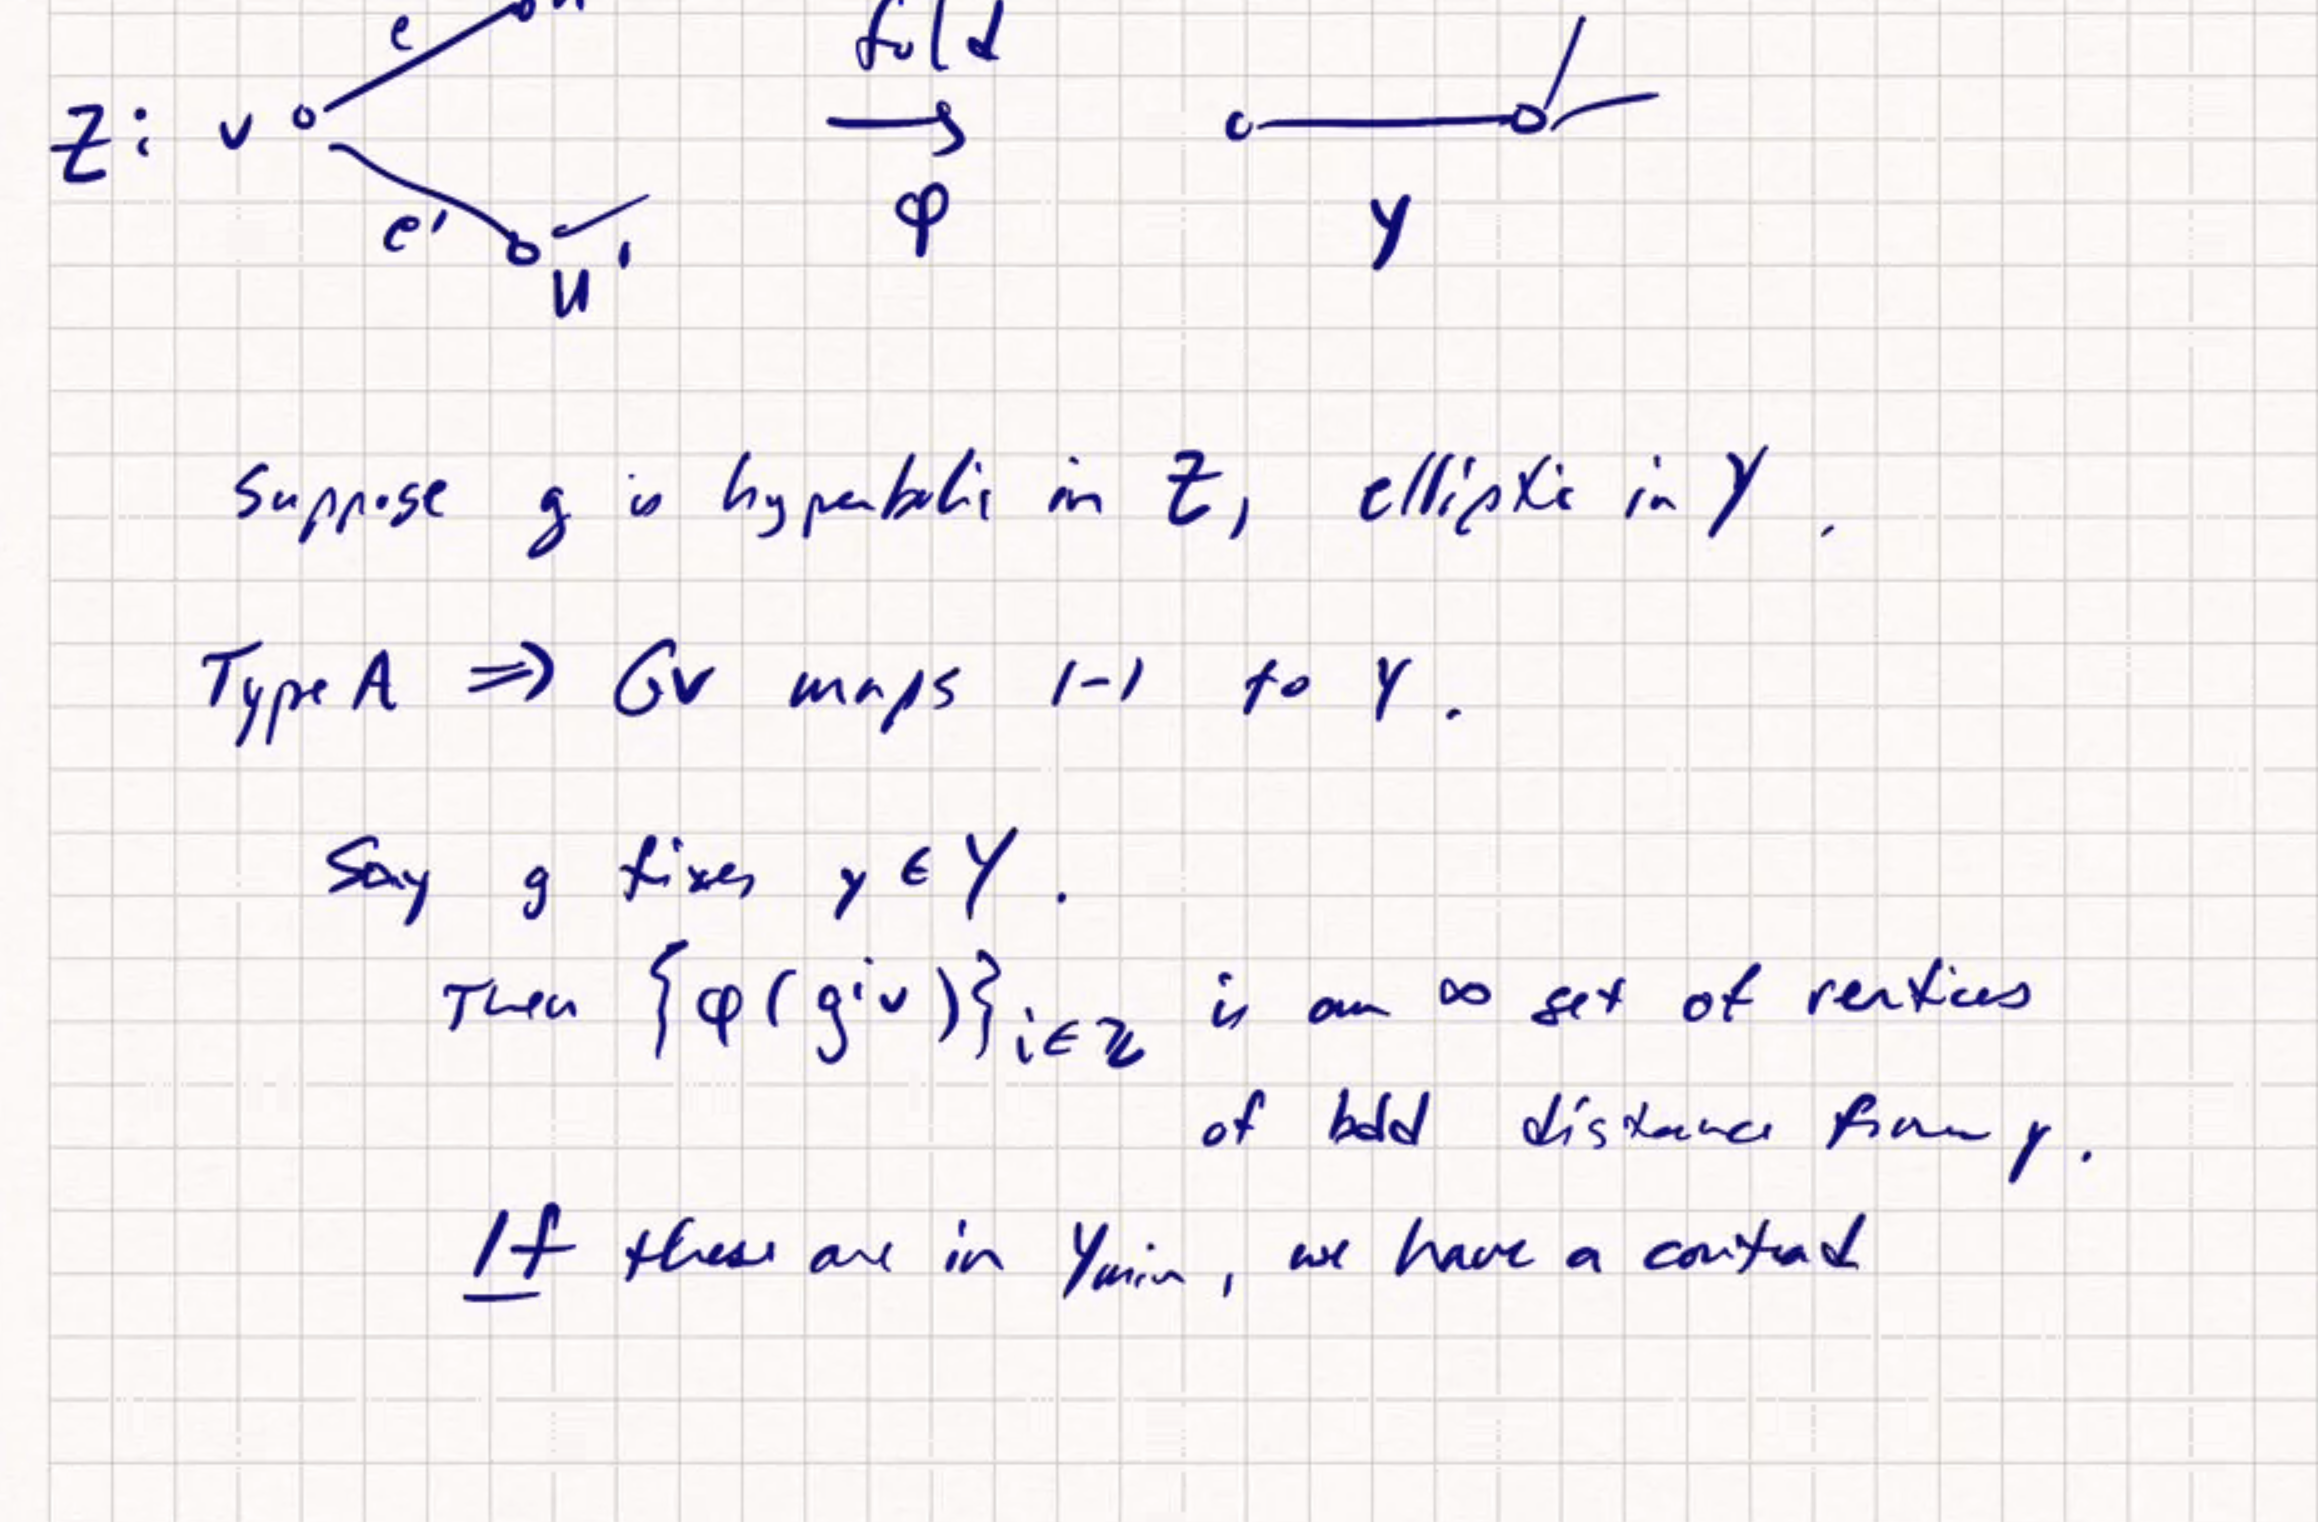 e fold
Z: v
e' φ Y
u'
Suppose g is hyperbolic in Z, elliptic in Y.
Type A ⇒ Gv maps 1-1 to Y.
Say g fixes y ∈ Y.
Then {φ(gⁱv)}i∈ℤ is an ∞ set of vertices
of bdd distance from y.
If these are in Ymin, we have a contrad